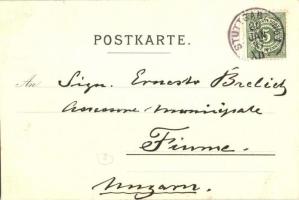 STUTTGART
5
POSTKARTE.
An Sign. Ernesto Brelich
Assessore Municipale
Fiume.
Ungarn.